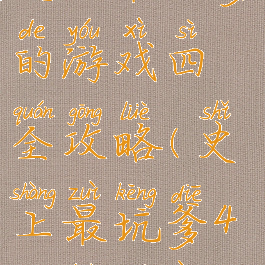 de yóu xì sì
的游戏四
quán gōng lüè shǐ
全攻略(史
shàng zuì kēng diē
上最坑爹4